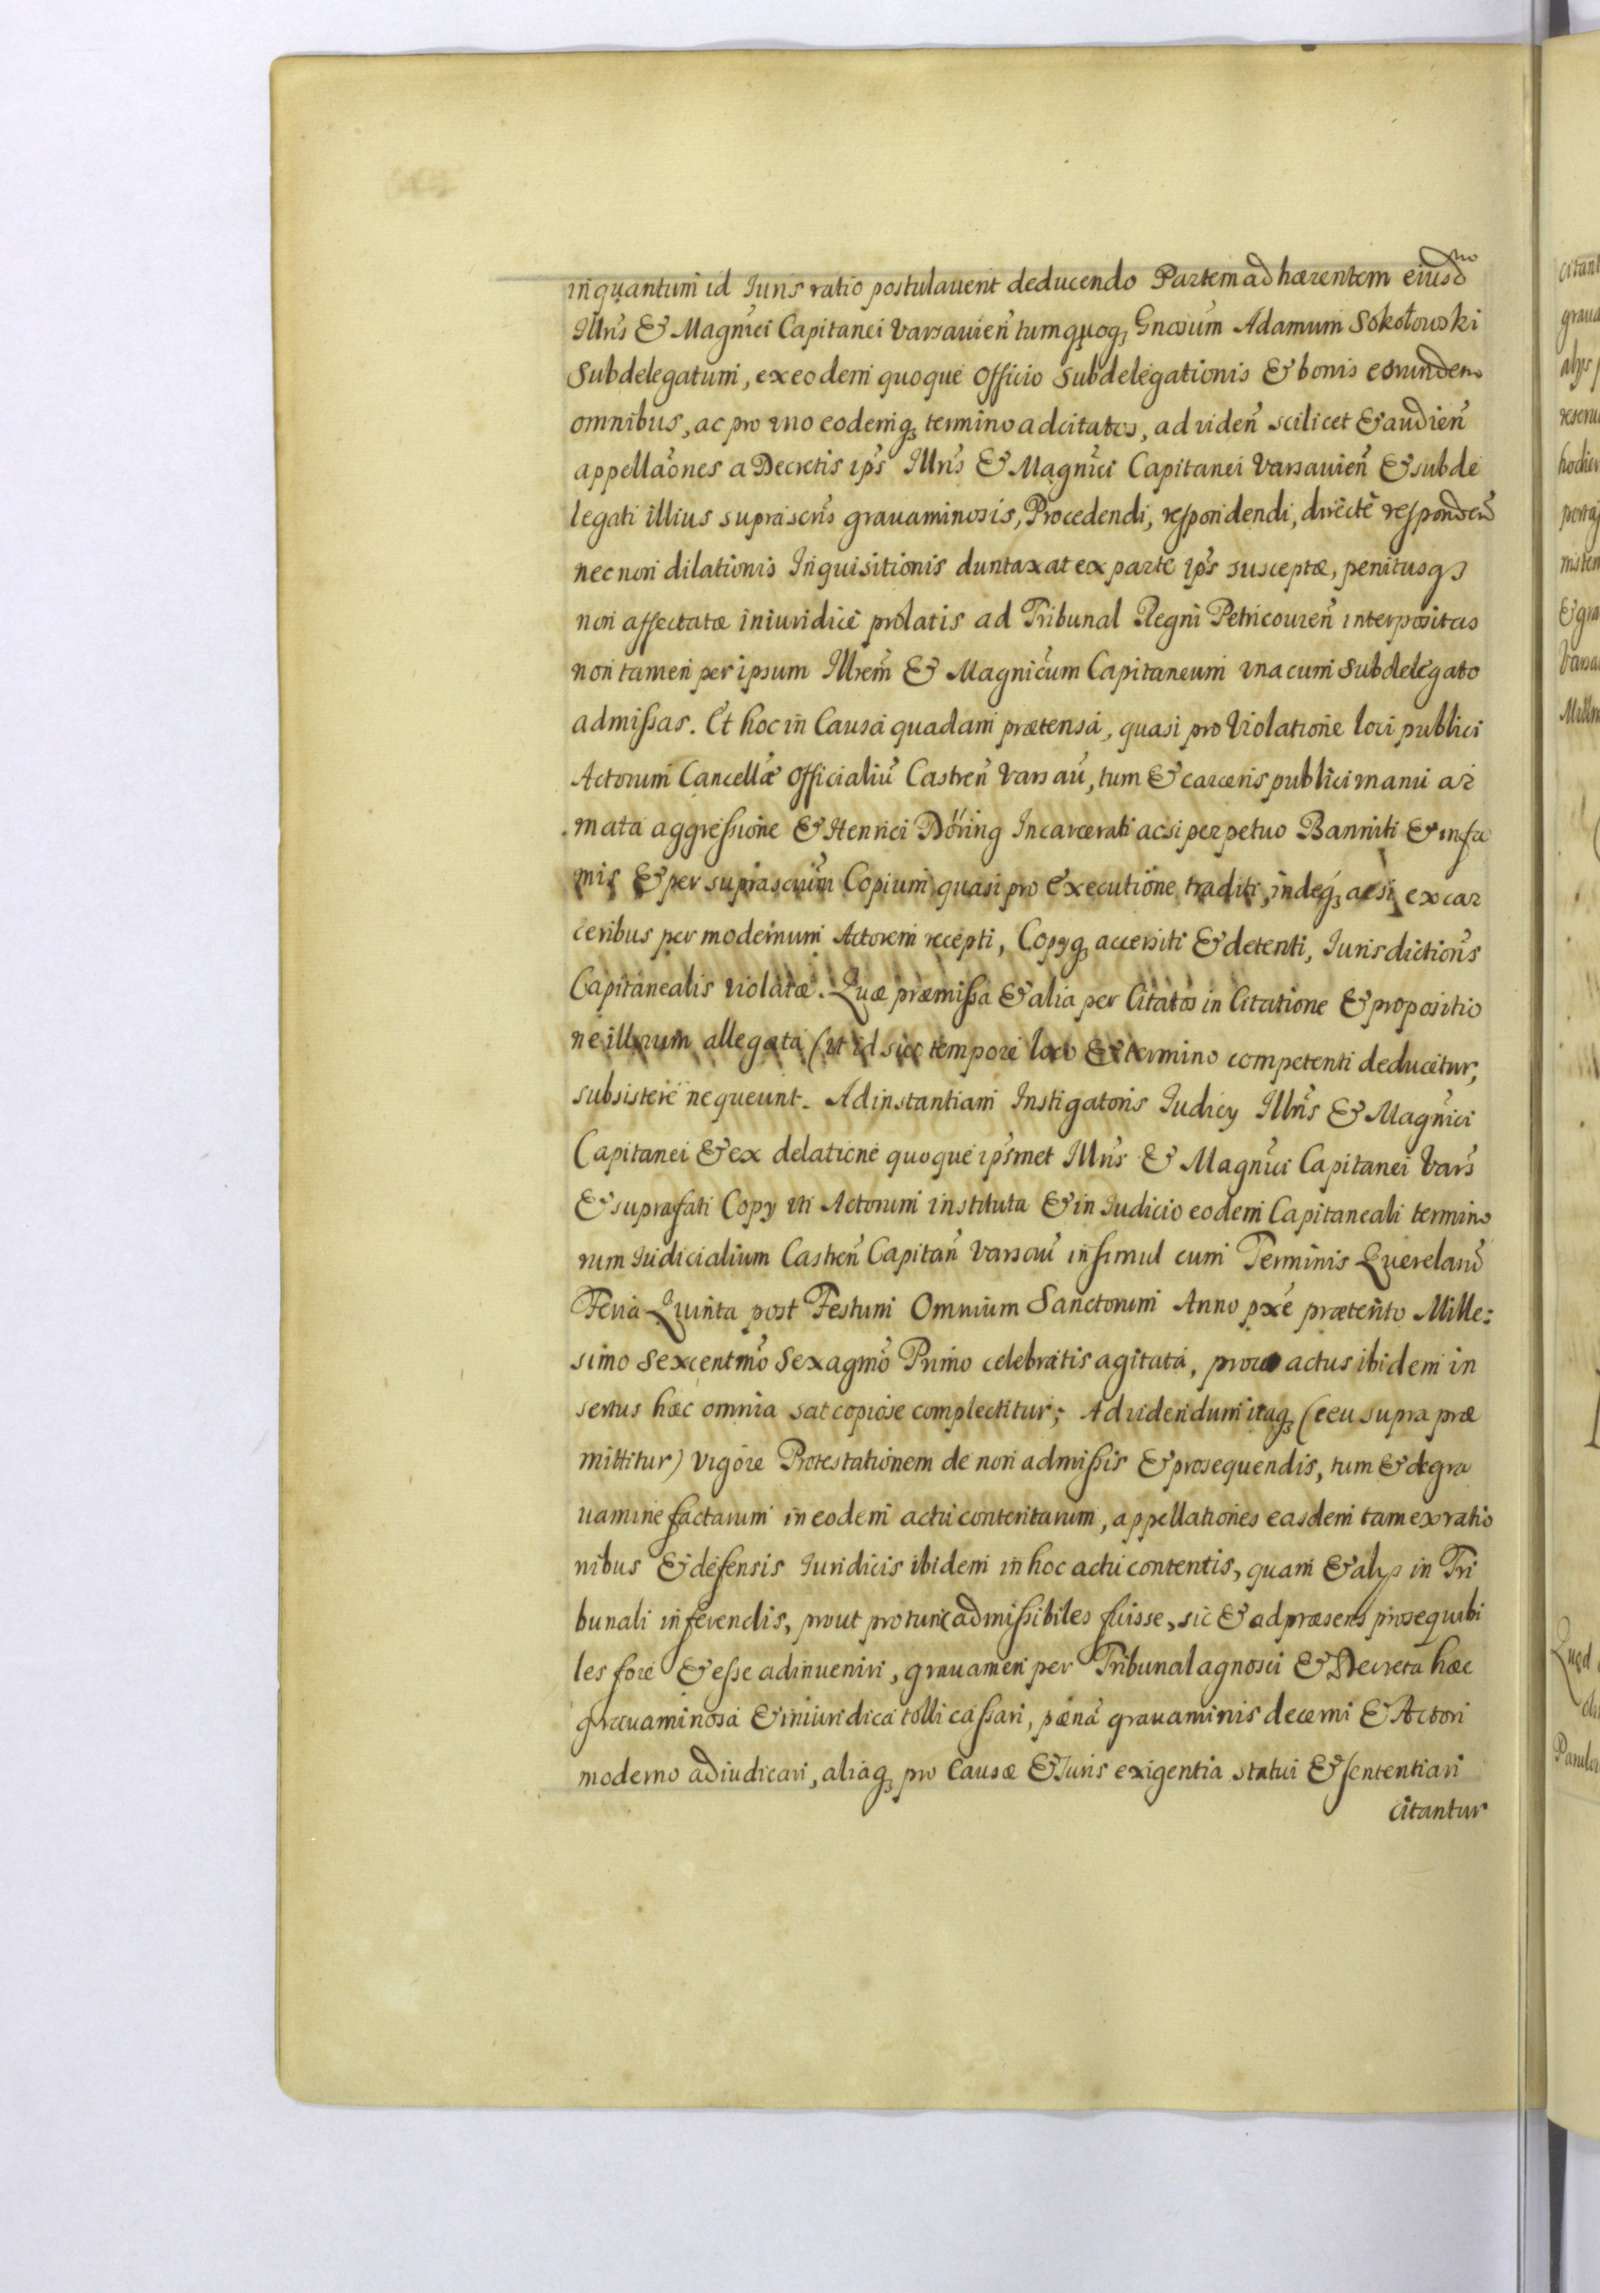 inquantum id Iuris ratio postulauerit deducendo Partem adhærentem eiusd
Illris & Magnici Capitanei Varsauien tumquoq, Gnosum Adamum Sokołowski
Subdelegatum, ex eodem quoque Officio Subdelegationis & bonis eorundem
omnibus, ac pro uno eodemq, termino adcitatos, ad viden scilicet & audien
appellaones a Decretis ips Illris & Magnici Capitanei Varsauien & subde
legati illius suprascris grauaminosis, Procedendi, respondendi, directe responden
nec non dilationis Inquisitionis duntaxat ex parte ips susceptæ, penitusq,
non affectatæ iniuridice prolatis ad Tribunal Regni Petricouien interpositas
non tamen per ipsum Illrem & Magnicum Capitaneum vna cum Subdelegato
admissas. Et hoc in Causa quadam prætensa, quasi pro Violatione loci publici
Actorum Cancellæ Officialiu Castren Varsau, tum & carceris publici manu ar
mata aggressione & Henrici Döring Incarcerati acsi perpetuo Banniti & infa
mis & per suprascrium Copium quasi pro executione traditi, indeq, acsi ex car
ceribus per modernum Actorem recepti, Copyq, accersiti & detenti, Iurisdictionis
Capitanealis violatæ. Quæ præmissa & alia per Citatos in Citatione & propositio
ne illorum allegata (ut id suo tempore loco & termino competenti deducetur,
subsistere nequeunt. Ad instantiam Instigatoris Iudicy Illris & Magnici
Capitanei & ex delatione quoque ipsmet Illris & Magnici Capitanei Vars
& suprafati Copy uti Actorum instituta & in Iudicio eodem Capitaneali termino
rum Iudicialium Castren Capitan Varsau insimul cum Terminis Querelaru
Feria Quinta post Festum Omnium Sanctorum Anno pxe prætento Mille:
simo Sexcentmo Sexagmo Primo celebratis agitata, prout actus ibidem in
sertus hæc omnia sat copiose complectitur; Ad videndum itaq, (ceu supra præ
mittitur) vigore Protestationem de non admissis & prosequendis, tum & de gra
uamine factarum in eodem actu contentarum, appellationes easdem tam ex ratio
nibus & defensis Iuridicis ibidem in hoc actu contentis, quam & alys in Tri
bunali inferendis, prout pro tunc admissibiles fuisse, sic & ad præsens prosequibi
les fore & esse adinueniri, grauamen per Tribunal agnosci & Decreta hæc
grauaminosa & iniuridica tolli cassari, pænā grauaminis decerni & Actori
moderno adiudicari, aliaq, pro Causæ & Iuris exigentia statui & sententiari
citantur